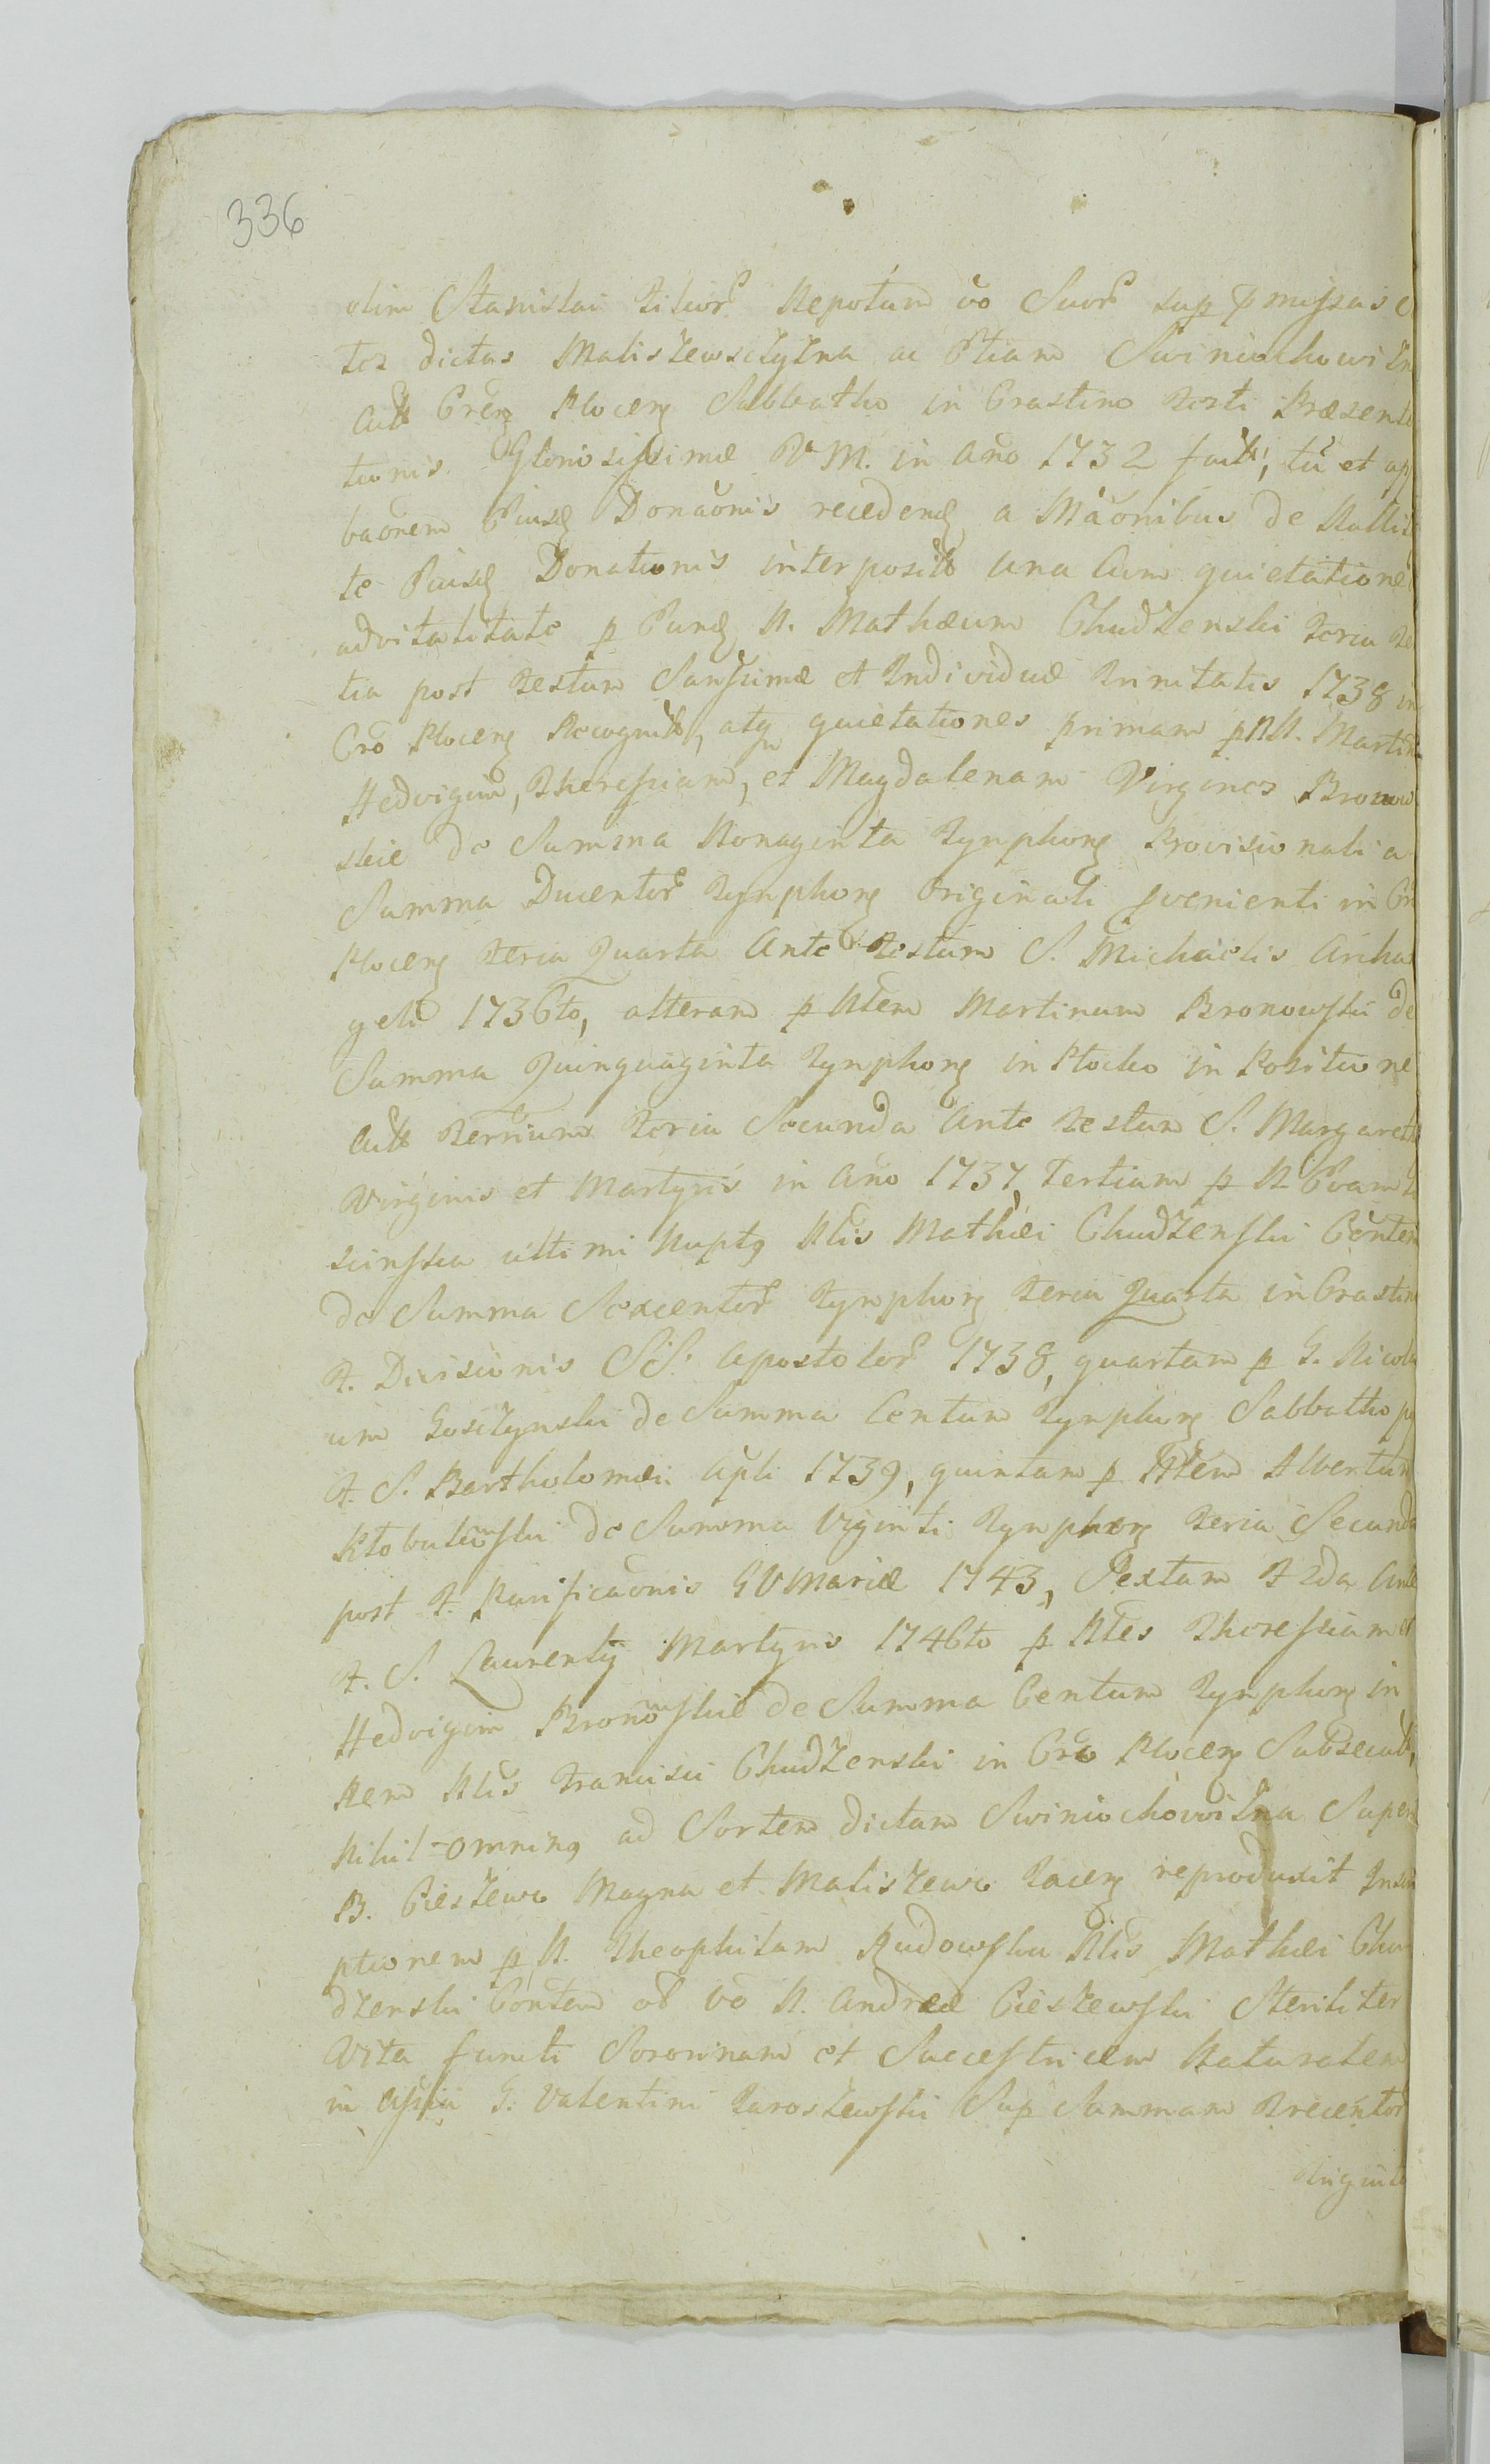 336
olim Stanislai Filior Nepotum vo Suor sup pmissas
tes dictas Maliszewsczyzna ac Etiam Swiniochowizn
Actt Cren Plocen Sabbatho in Crastino Festi Præsenta
tionis Gloriosissimæ V. M. in Ano 1732 fact, tu et ap
baonem Eiusd Donaonis recedend a Maonibus de Nullit
te Eiusd Donationis interposit una Cum quietatione
advitalitate p Eund N. Mathæum Chudzenski Feria Te
tia post Festum Sanssimæ et Individuæ Trinitatis 1738 in
Cro Plocen Recognit, atq quietationes primam p NN. Martin
Hedvigim, Theressiam, et Magdalenam Virgines Bronow
skie de Summa Nonaginta Tynphon Provisionali a
Summa Ducentor Tynphon Originali pvenienti in Cr
Plocen Feria Quarta Ante Festum S. Michaelis Archa
geli 1736to, alteram p Nlem Martinum Bronowski de
Summa Quinquaginta Tynphon in Plocko in Positione
Actt Terrium Feria Secunda Ante Festum S. Margareth
Virginis et Martyris in Ano 1737, Tertiam p N. Evam
scinska ultimi Nupty Nlis Mathæi Chudzenski Contem
de Summa Sexcentor Tynphon Feria Quarta in Crastino
F. Divisionis SS. Apostolor 1738, quartam p G. Nicola
um Gosczynski de Summa Centum Tynphon Sabbatho p
F. S. Bartholomæi Apli 1739, quintam p Nlem Albertum
Klobukowski de Summa Viginti Tynphon Feria Secunda
post F. Purificaonis BVMariæ 1743, Sextam F 2da Ante
F. S. Laurentij Martyris 1746to p Nles Theressiam et
Hedvigim Bronowskie de Summa Centum Tynphon in
Rem Nlis Francisci Chudzenski in Cro Plocen Subsecut,
Nihil-oming ad Sortem dictam Swiniochowizna Super
B. Cieszewo Magna et Maliszewo Jacen reproduxit Inscri
ptionem p N. Theophilam Rudowska Nlis Mathæi Chu
dzenski Contem ol vo N. Andreæ Cieszewski Steriliter
Vita functi Sororinam et Succestricem Naturalem
in Assia G. Valentini Jaroszewski Sup Summam Trecentor
Triginta